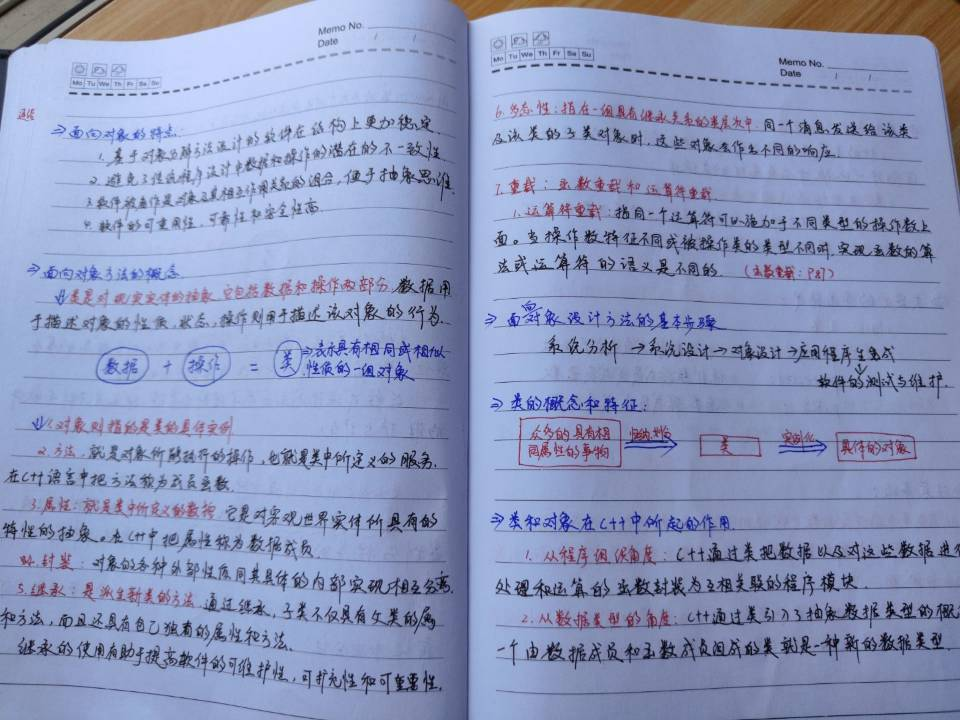 Memo No.
Date / /
Mo Tu We Th Fr Sa Su
⇒面向对象的特点:
1. 基于对象分解方法设计的软件在结构上更加稳定.
2. 避免了传统程序设计中数据和操作的潜在的不一致性
3. 软件被看作是对象及其相互作用关系的组合, 便于抽象思维.
4. 软件的可重用性, 可靠性和安全性高.
⇒面向对象方法的概念
类是对现实实体的抽象, 它包括数据和操作两部分, 数据用
于描述对象的性质, 状态, 操作则用于描述该对象的行为.
数据 + 操作 = 类 ⇒表示具有相同或相似
性质的一组对象
1. 对象则指的是类的具体实例
2. 方法, 就是对象所能执行的操作, 也就是类中所定义的服务.
在C++语言中把方法称为成员函数.
3. 属性: 就是类中所定义的数据, 它是对客观世界实体所具有的
特性的抽象。在C++中把属性称为数据成员
4. 封装: 对象的各种外部性质同其具体的内部实现相互分离.
5. 继承: 是派生新类的方法, 通过继承, 子类不仅具有父类的属
和方法, 而且还具有自己独有的属性和方法.
继承的使用有助于提高软件的可维护性, 可扩充性和可重要性.
Memo No.
Date / /
Mo Tu We Th Fr Sa Su
6. 多态性: 指在一组具有继承关系的类层次中, 同一个消息发送给该类
及该类的子类对象时, 这些对象会作出不同的响应.
7. 重载: 函数重载和运算符重载.
1. 运算符重载: 指同一个运算符可以施加于不同类型的操作数上
面。当操作数特征不同或被操作类的类型不同时, 实现函数的算
法或运算符的语义是不同的. (函数重载: P81)
⇒面向对象设计方法的基本步骤
系统分析 → 系统设计 → 对象设计 → 应用程序生成
软件的测试与维护.
⇒类的概念和特征:
众多的具有相
同属性的事物 归纳、抽象 类 实例化 具体的对象
⇒类和对象在C++中所起的作用
1. 从程序组织角度: C++通过类把数据以及对这些数据进行
处理和运算的函数封装为互相关联的程序模块.
2. 从数据类型的角度: C++通过类引入了抽象数据类型的概
一个由数据成员和函数成员组成的类就是一种新的数据类型.